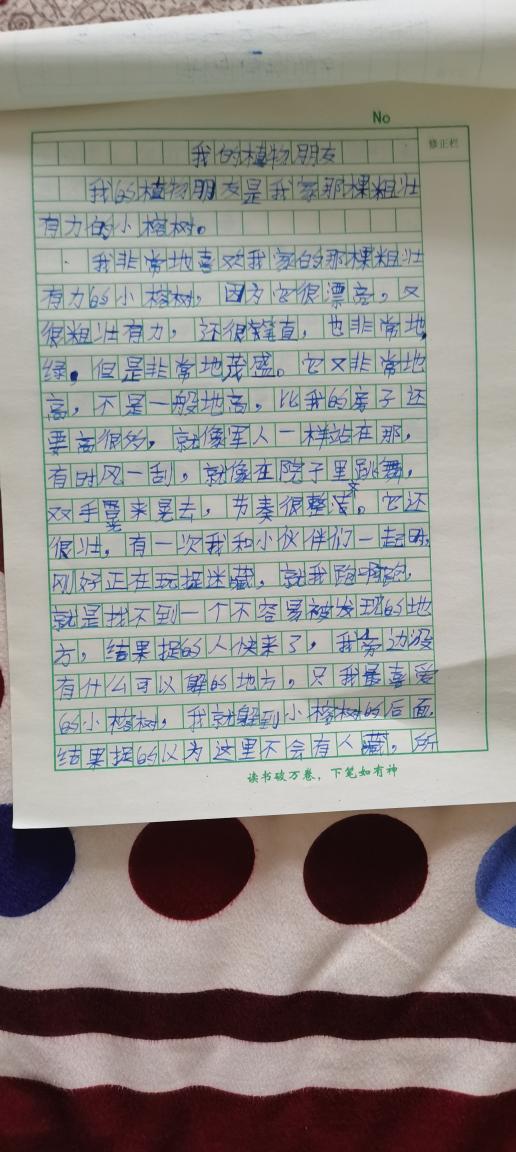 No
修正栏
我的植物朋友
我的植物朋友是我家那棵粗壮
有力的小榕树。
我非常地喜欢我家的那棵粗壮
有力的小榕树，因为它很漂亮，又
很粗壮有力，还很笔直，也非常地
绿，但是非常地茂盛。它又非常地
高，不是一般地高，比我的房子还
要高很多，就像军人一样站在那，
有时风一刮，就像在院子里跳舞，
双手晃来晃去，节奏很整齐。它还
很壮，有一次我和小伙伴们一起
刚好正在玩捉迷藏，就我跑啊跑，
就是找不到一个不容易被发现的地
方，结果捉的人快来了，我旁边没
有什么可以躲的地方，只我最喜爱
的小榕树，我就躲到小榕树的后面，
结果捉的以为这里不会有人藏，所
读书破万卷，下笔如有神